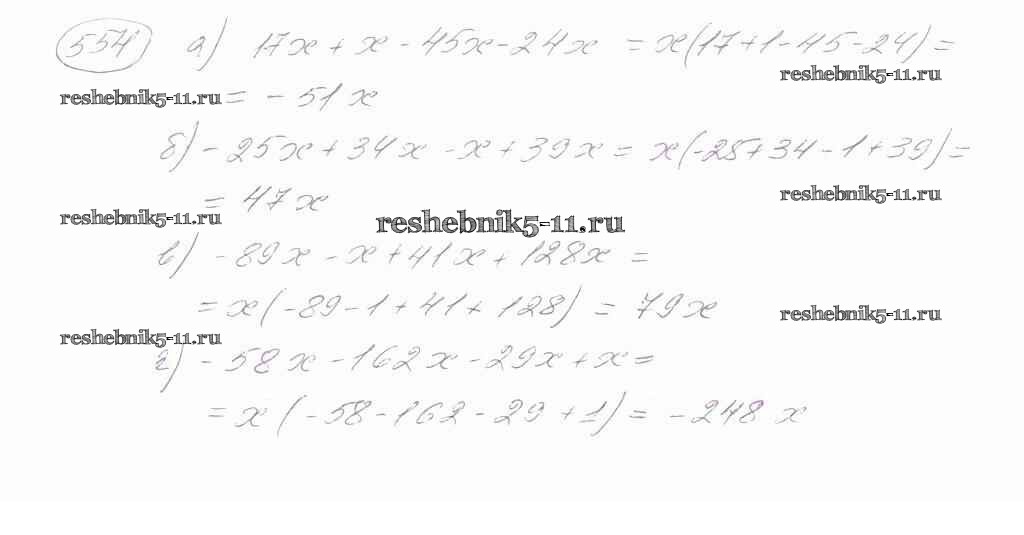 554 а) 17x + x - 45x - 24x = x(17+1-45-24) =
reshebnik5-11.ru
reshebnik5-11.ru = - 51x
б) - 25x + 34x - x + 39x = x(-25+34-1+39) =
reshebnik5-11.ru
= 47x
reshebnik5-11.ru reshebnik5-11.ru
в) - 89x - x + 41x + 128x =
= x(-89-1+41+128) = 79x
reshebnik5-11.ru
reshebnik5-11.ru
г) - 58x - 162x - 29x + x =
= x(-58-162-29+1) = -248x